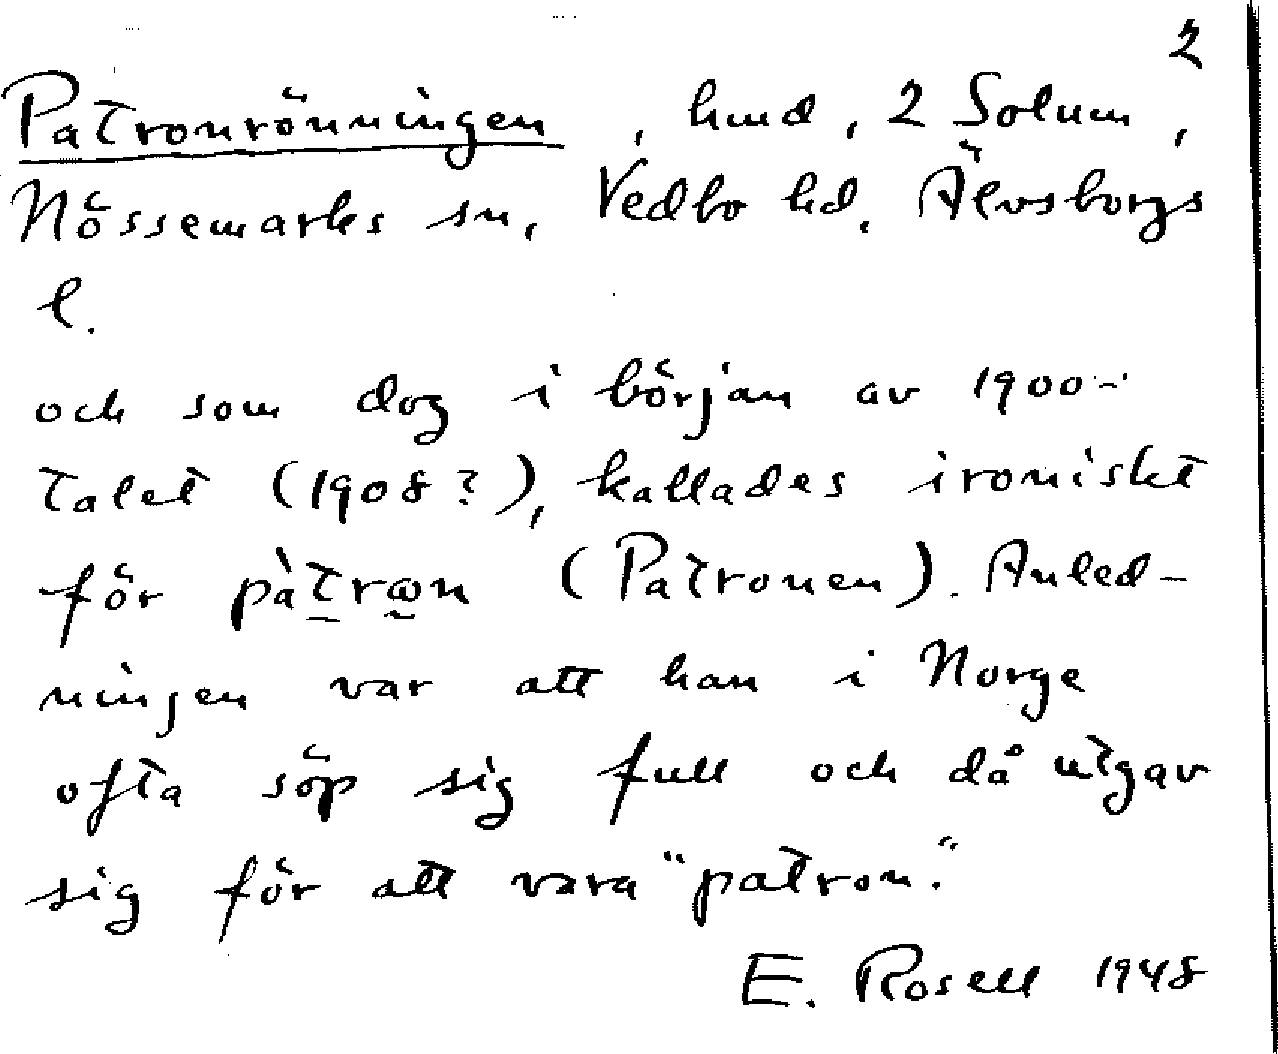 2
Patronrönningen, hmd, 2 Solum,
Nössemarks sn, Vedbo hd. Älvsborgs
l.
och som dog i början av 1900-
talet (1908?), kallades ironiskt
för pàtrωn (Patronen). Anled-
ningen var att han i Norge
ofta söp sig full och då utgav
sig för att vara "patron."
E. Rosell 1948